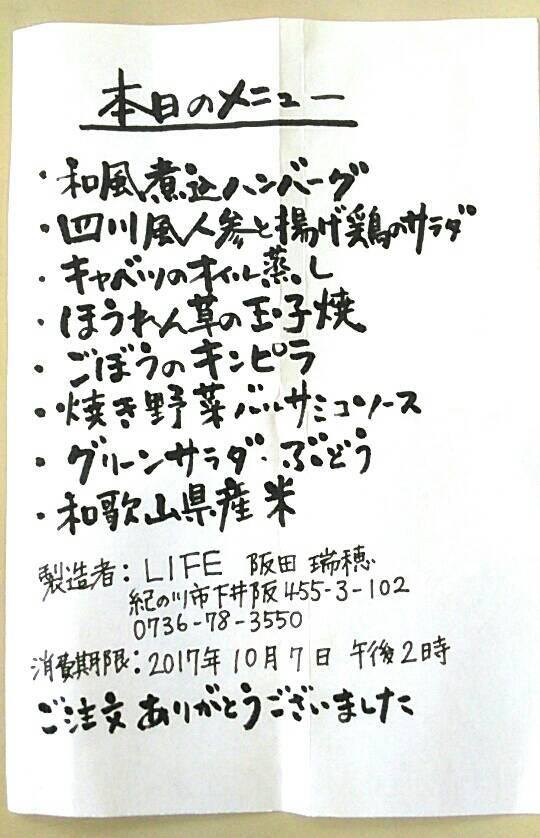 本日のメニュー
・和風煮込ハンバーグ
・四川風人参と揚げ鶏のサラダ
・キャベツのオイル蒸し
・ほうれん草の玉子焼
・ごぼうのキンピラ
・焼き野菜バルサミコソース
・グリーンサラダ・ぶどう
・和歌山県産米
製造者：LIFE 阪田 瑞穂
紀の川市下井阪455-3-102
0736-78-3550
消費期限：2017年10月7日 午後2時
ご注文ありがとうございました